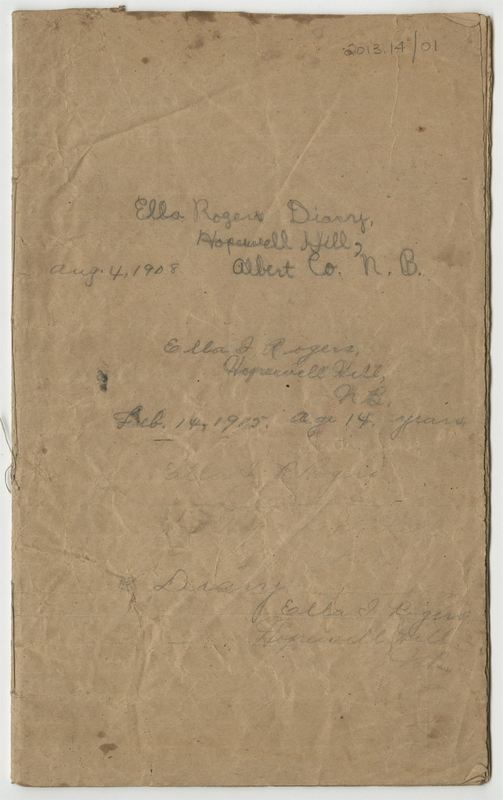 2013.14/01
Ella Rogers Diary,
Hopewell Hill,
Aug. 4, 1908 Albert Co. N. B.
Ella I Rogers,
Hopewell Hill,
N.B.
Feb. 14, 1905. Age 14 years
Ella I Rogers
Dirary
Ealla I Rogers
Hopewell Hill